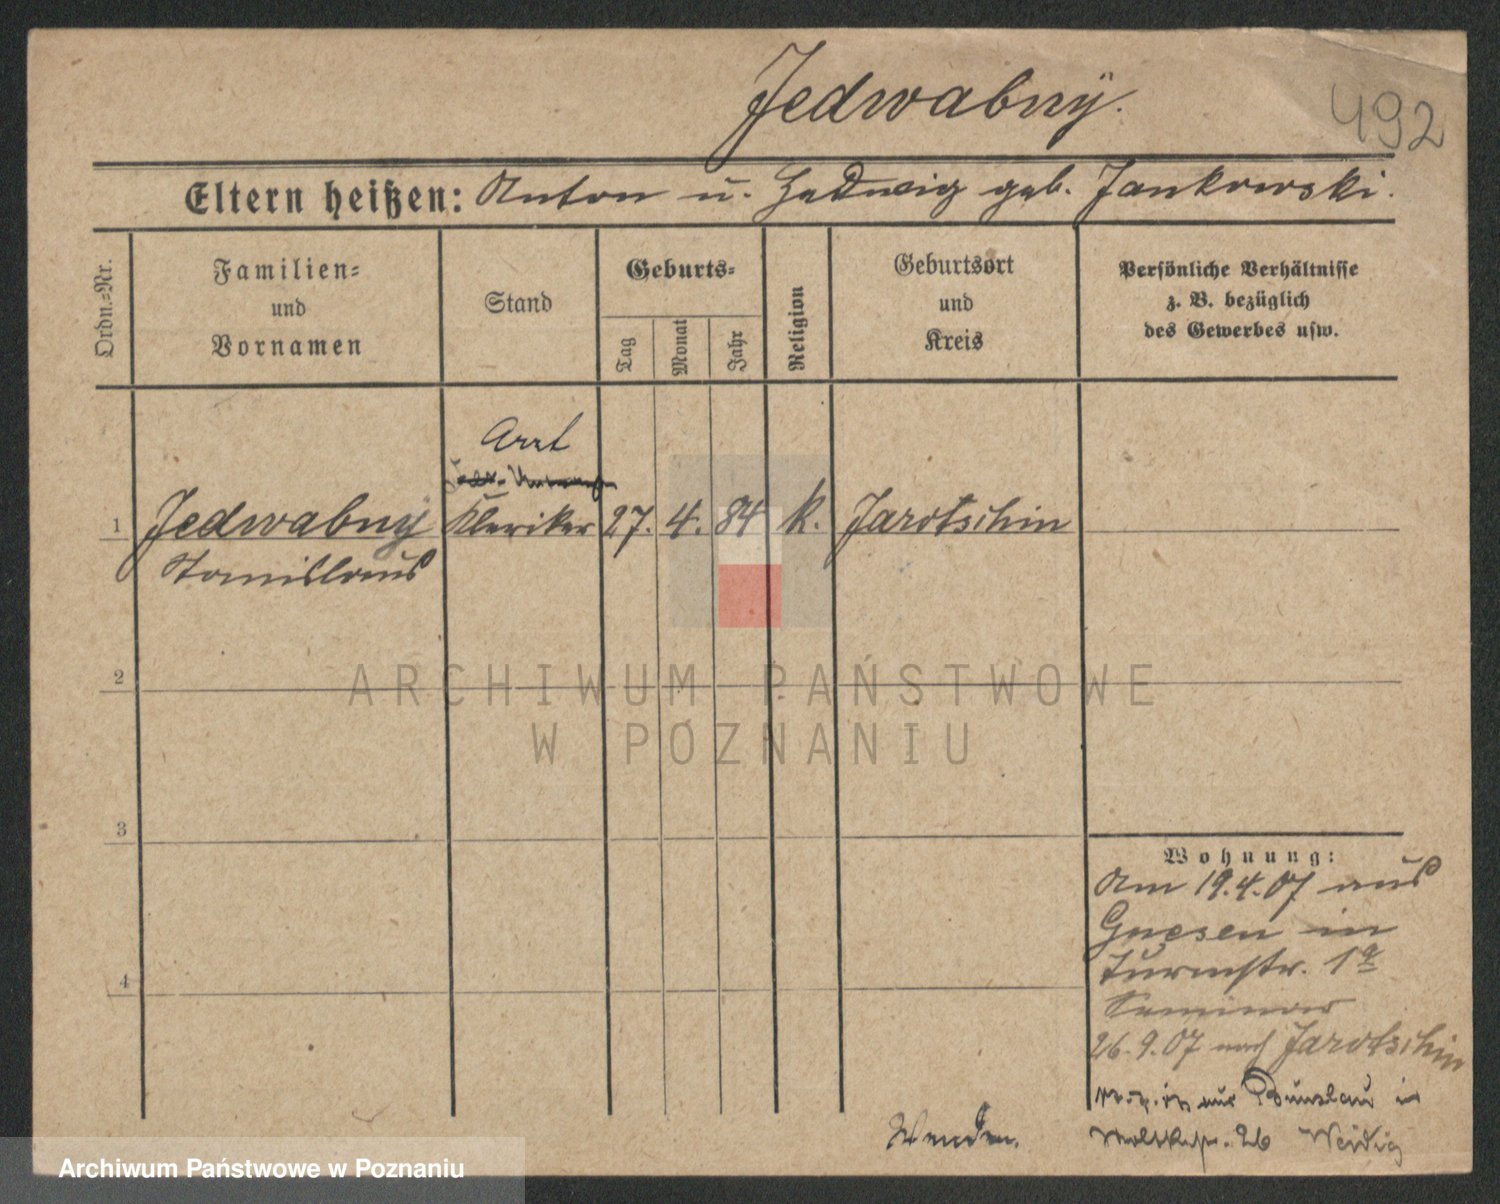 Jedwabnÿ.
492
Eltern heißen: Anton u. Hedwig geb. Jankowski.
Ordn.-Nr.
Familien-
und
Vornamen
Stand
Geburts-
Tag
Monat
Jahr
Religion
Geburtsort
und
Kreis
Persönliche Verhältnisse
z. B. bezüglich
des Gewerbes usw.
Arzt
1 Jedwabny Kleriker 27. 4. 84 k. Jarotschin
Stanislaus
2
ARCHIWUM PAŃSTWOWE
W POZNANIU
3
Wohnung:
Am 19.4.07 aus
Gnesen in
Turmstr. 1a
Seminar
4
26.9.07 nach Jarotschin
aus Bunzlau in
26 Weidig
Wenden.
Archiwum Państwowe w Poznaniu